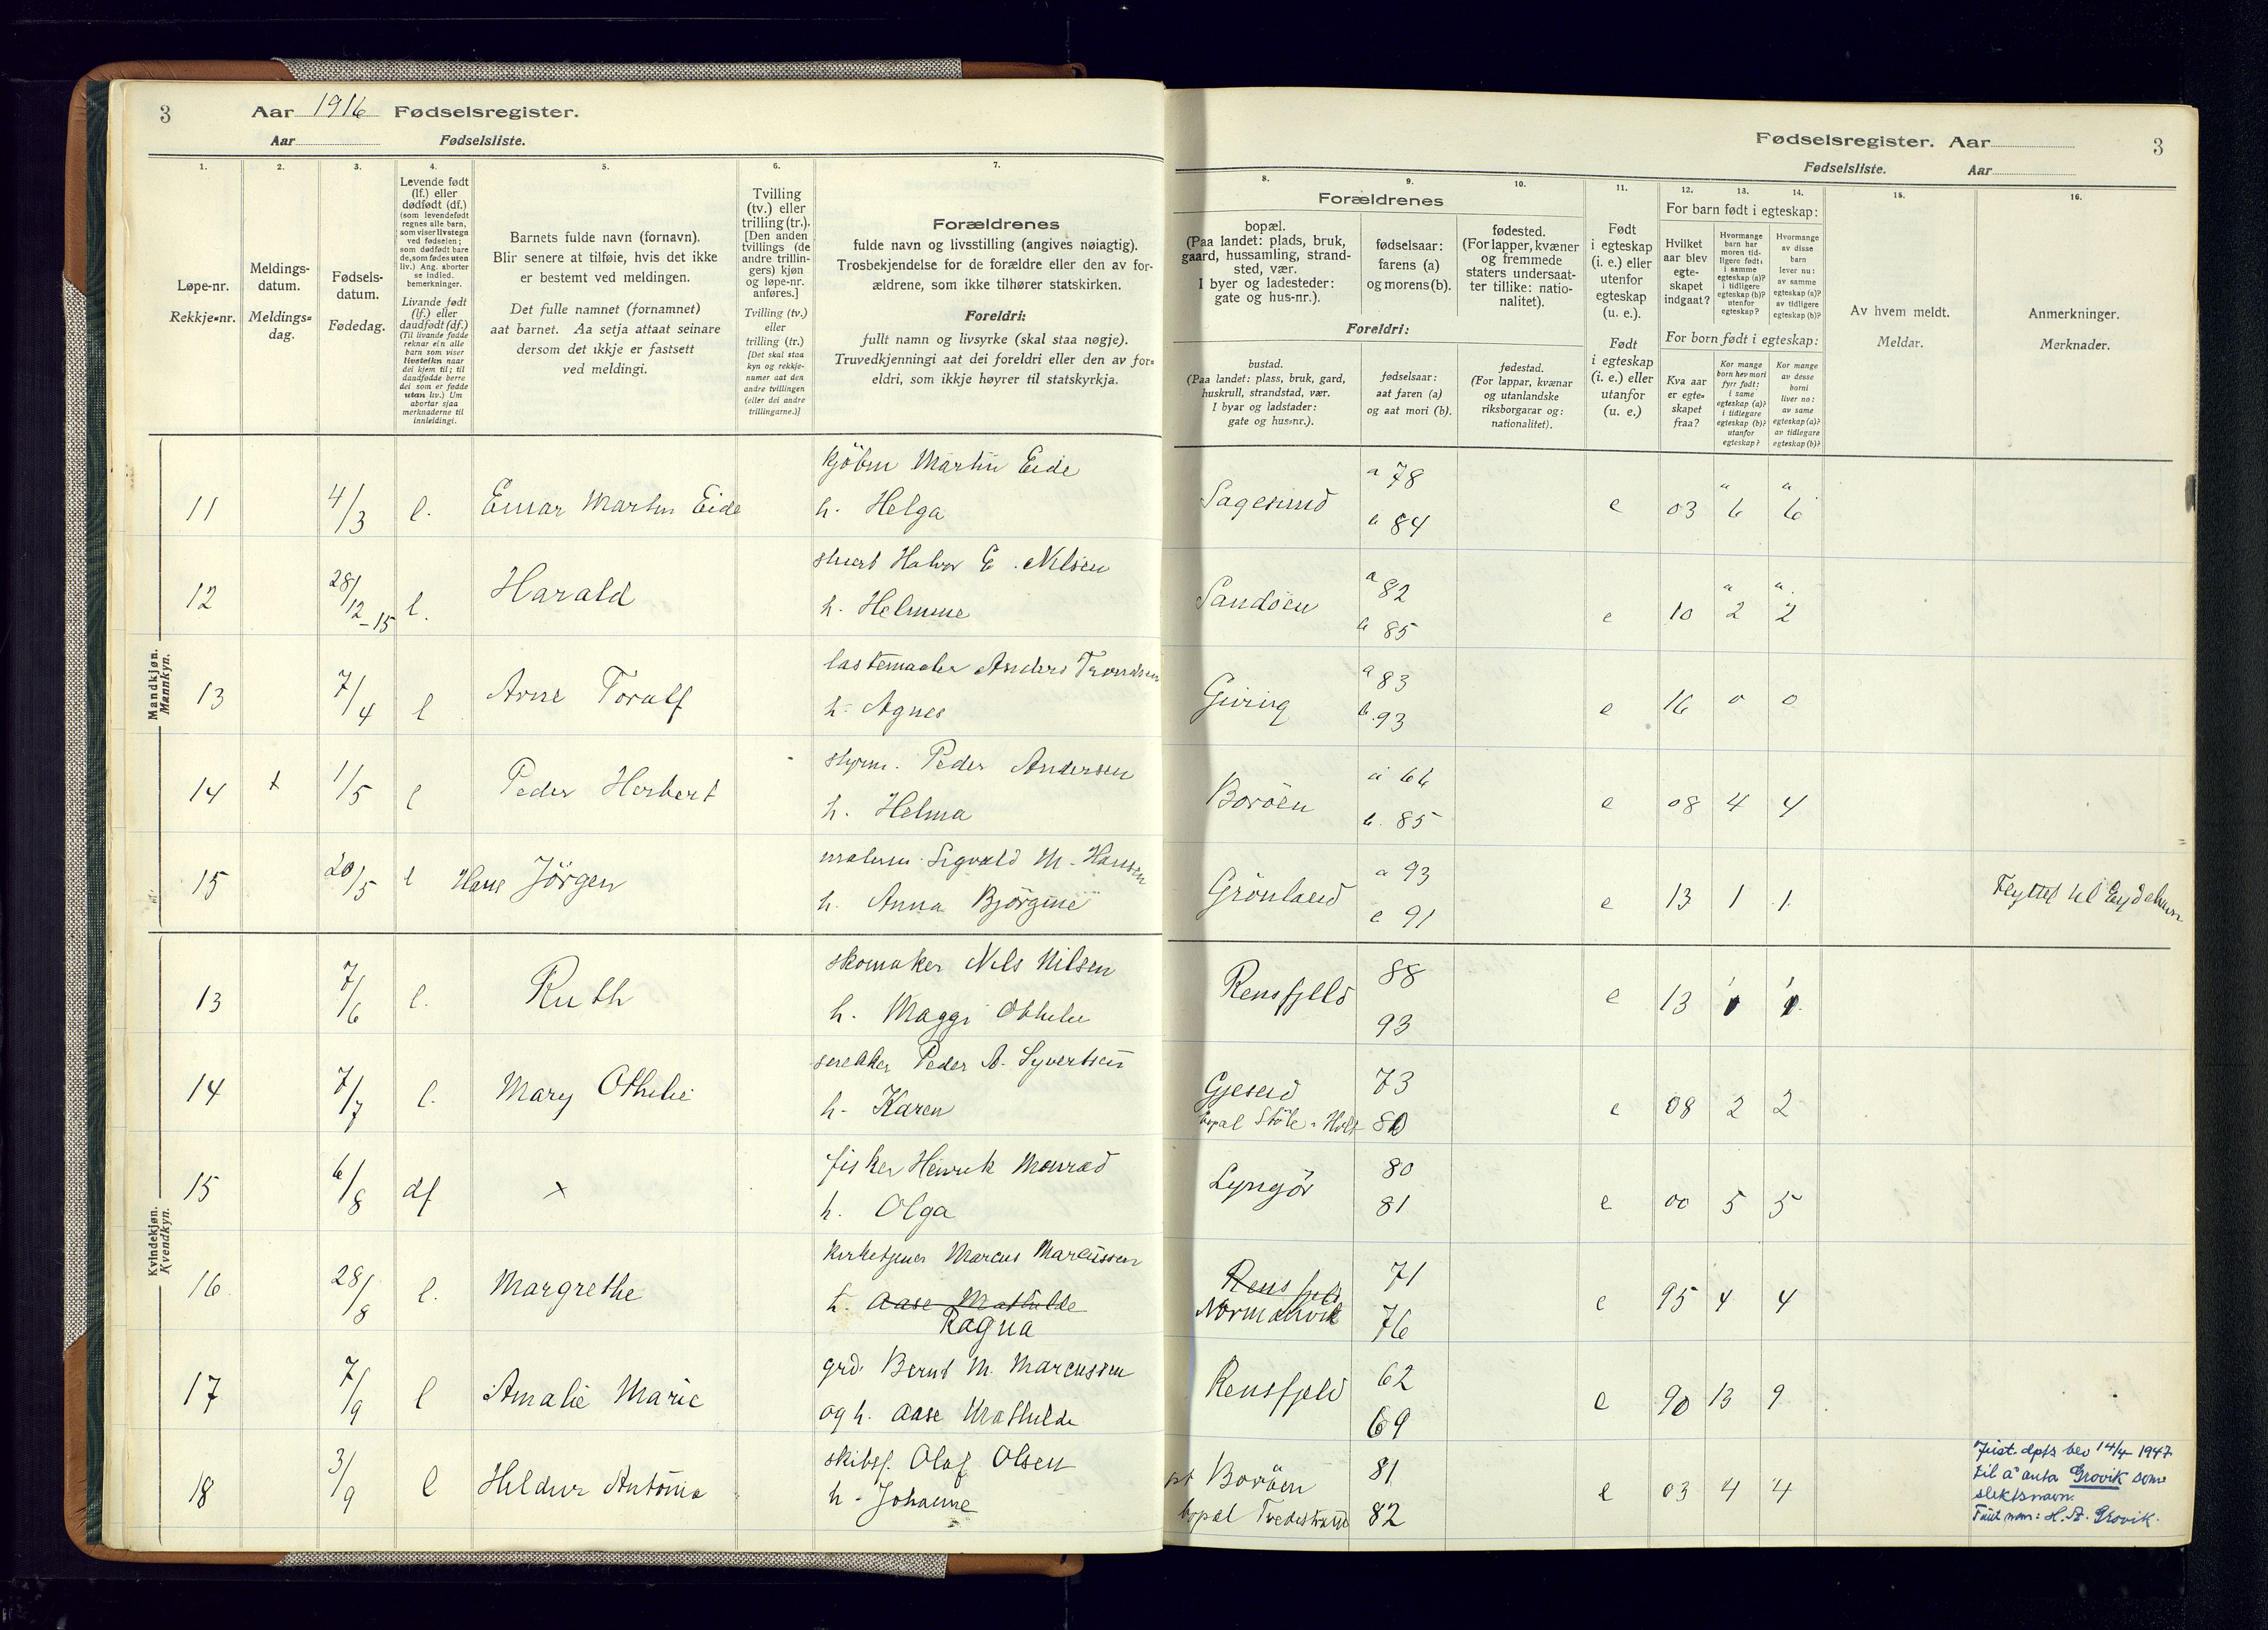 3
Aar 1916 Fødselsregister.
Aar Fødselsliste.
Fødselsregister. Aar 3
Fødselsliste. Aar
1. 2. 3. 4. 5. 6. 7. 8. 9. 10. 11. 12. 13. 14. 15. 16.
Løpe-nr.
Rekkje-nr.
Meldings-
datum.
Meldings-
dag.
Fødsels-
datum.
Fødedag.
Levende født
(lf.) eller
dødfødt (df.)
(som levendefødt
regnes alle barn,
som viser livstegn
ved fødselen;
som dødfødt bare
de, som fødes uten
liv.) Ang. aborter
se indled.
bemerkninger.
Livande født
(lf.) eller
daudfødt (df.)
(Til livande fødde
reknar ein alle
barn som viser
livsteikn naar
dei kjem til; til
daudfødde berre
dei som er fødde
utan liv.) Um
abortar sjaa
merknaderne til
innleidingi.
Barnets fulde navn (fornavn).
Blir senere at tilføie, hvis det ikke
er bestemt ved meldingen.
Det fulle namnet (fornamnet)
aat barnet. Aa setja attaat seinare
dersom det ikkje er fastsett
ved meldingi.
Tvilling
(tv.) eller
trilling (tr.).
[Den anden
tvillings (de
andre trillin-
gers) kjøn
og løpe-nr.
anføres.]
Tvilling (tv.)
eller
trilling (tr.)
[Det skal staa
kyn og rekkje-
numer aat den
andre tvillingen
(eller dei andre
trillingarne.)]
Forældrenes
fulde navn og livsstilling (angives nøiagtig).
Trosbekjendelse for de forældre eller den av for-
ældrene, som ikke tilhører statskirken.
Foreldri:
fullt namn og livsyrke (skal staa nøgje).
Truvedkjenningi aat dei foreldri eller den av for-
eldri, som ikkje høyrer til statskyrkja.
Forældrenes
bopæl.
(Paa landet: plads, bruk,
gaard, hussamling, strand-
sted, vær.
I byer og ladesteder:
gate og hus-nr.).
fødselsaar:
farens (a)
og morens (b).
fødested.
(For lapper, kvæner
og fremmede
staters undersaat-
ter tillike: natio-
nalitet).
Foreldri:
bustad.
(Paa landet: plass, bruk, gard,
huskrull, strandstad, vær.
I byar og ladstader:
gate og hus-nr.).
fødselsaar:
aat faren (a)
og aat mori (b).
fødestad.
(For lappar, kvænar
og utanlandske
riksborgarar og:
nationalitet).
Født
i egteskap
(i. e.) eller
utenfor
egteskap
(u. e.).
Født
i egteskap
(i. e.) eller
utanfor
(u. e.)
For barn født i egteskap:
Hvilket
aar blev
egte-
skapet
indgaat?
Hvormange
barn har
moren tid-
ligere født:
i samme
egteskap (a)?
i tidligere
egteskap (b)?
utenfor
egteskap?
Hvormange
av disse
barn
lever nu:
av samme
egteskap (a)?
av tidligere
egteskap (b)?
For born født i egteskap:
Kva aar
er egte-
skapet
fraa?
Kor mange
born hev mori
fyrr født:
i same
egteskap (a)?
i tidlegare
egteskap (b)?
utanfor
egteskap?
Kor mange
av desse
borni
liver no:
av same
egteskap (a)?
av tidlegare
egteskap (b)?
Av hvem meldt.
Meldar.
Anmerkninger.
Merknader.
Mandkjøn.
Mannkyn.
11 4/3 l. Einar Martin Eide kjöbm Martin Eide h. Helga Sagesund a 78 b 84 e 03 6 6
12 28/12-15 l. Harald stuert Halvor E. Nilsen h. Helmine Sandöen a 82 b 85 e 10 2 2
13 7/4 l Arne Toralf lastemaaler Anders Trondsen h. Agnes Giving a 83 b. 93 e 16 0 0
14 t 1/5 l Peder Herbert styrm. Peder Andersen h. Helma Boröen a 66 b. 85 e 08 4 4
15 20/5 l Hans Jörgen Sigvald M. Hansen h. Anna Björgine Grönland a 93 91 e 13 1 1 Flyttet til Eydehavn
Kvindekjøn.
Kvendkyn.
13 7/6 l. Ruth skomaker Nils Nilsen h. Maggi Othelie Rensfjeld 88 93 e 13 1 1
14 7/7 l. Mary Othelie snekker Peder A. Syvertsen h. Karen Gjesend bopæl Støle i Holt 73 80 e 08 2 2
15 6/8 df x fisker Henrik Monrad h. Olga Lyngör 80 81 e 00 5 5
16 28/8 l. Margrethe kirketjener Marcus Marcussen h. Aase Mathilde Ragna Rensfjeld Normandvik 71 76 e 95 4 4
17 7/9 l Amalie Marie grd. Bernt M. Marcussen og h. Aase Mathilde Rensfjeld 62 69 e 90 13 9
18 3/9 l Heldur Antonia skibsf. Olaf Olsen h. Johanne pt Boröen bopæl Tvedestrand 81 82 e 03 4 4
Just. dpts bev 14/4 1947
til å anta Grovik som
slektsnavn.
Fullt navn: H. A. Grovik.